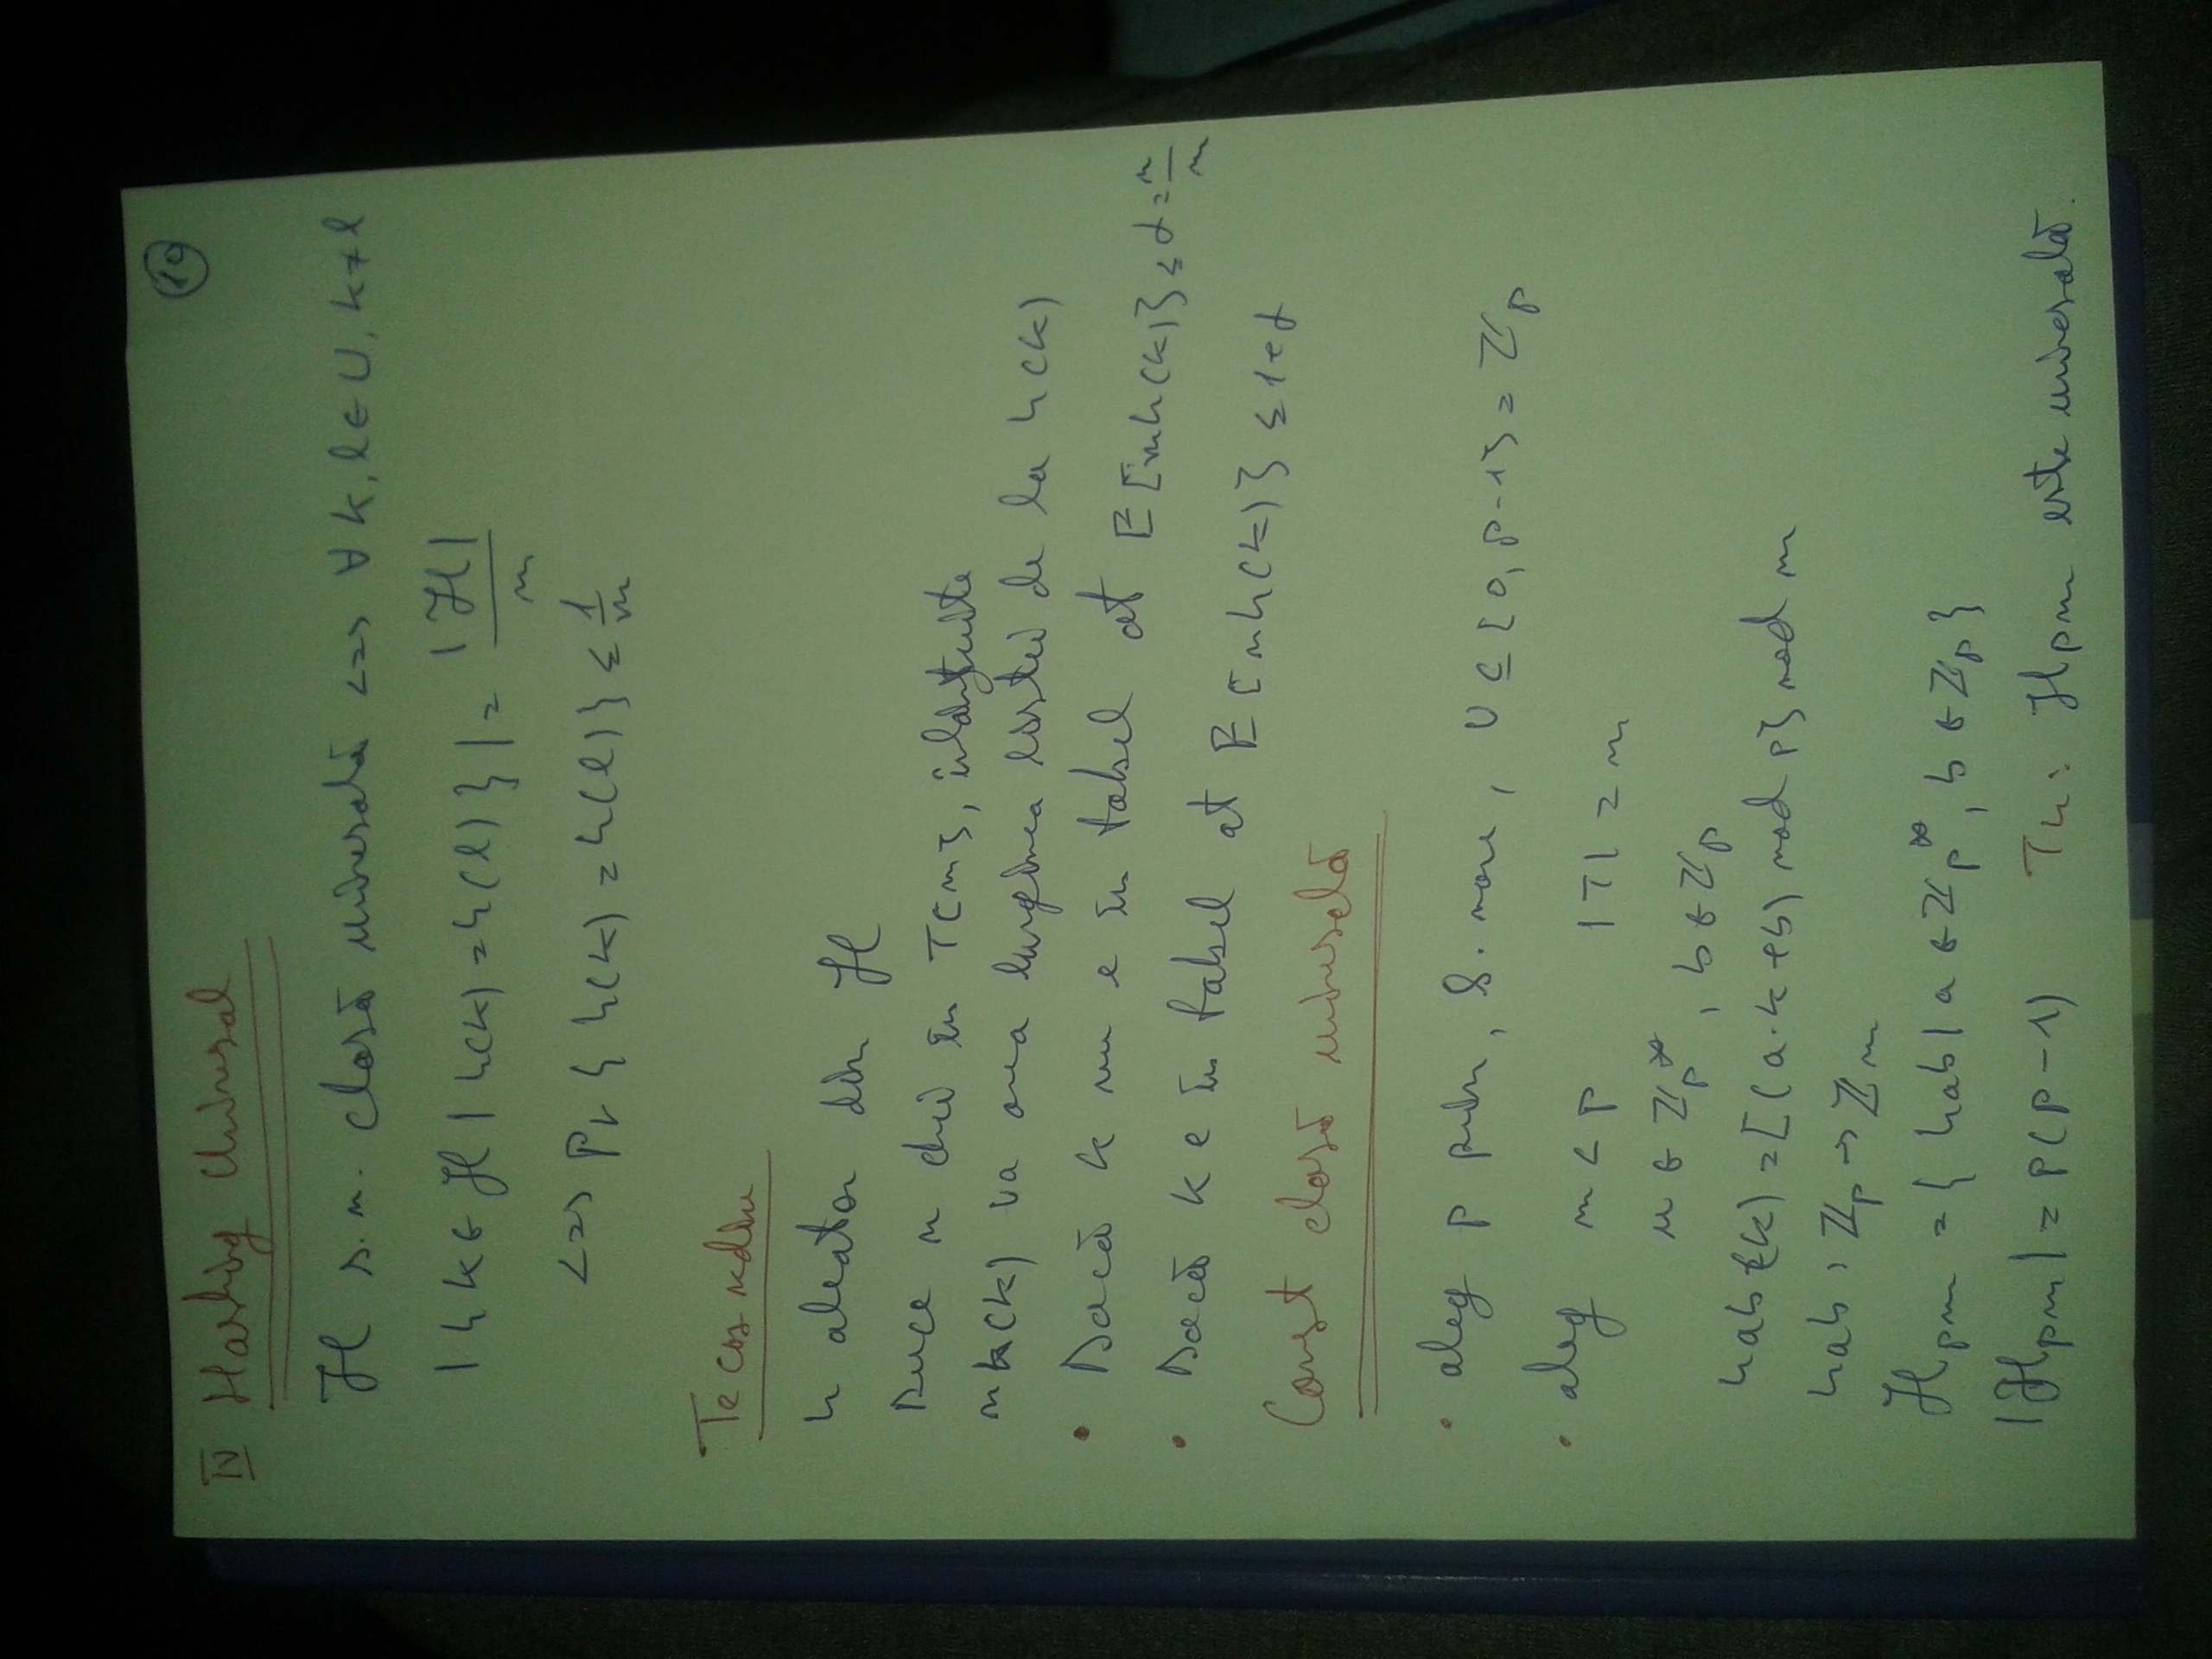 19
IV Hashing Universal
H s.n. clasă universală <=> ∀ k, l ∈ U, k ≠ l
|h k ∈ H | h(k) = h(l) }| = |H| / m
<=> Pr { h(k) = h(l) } ≤ 1/m
Teorema
h aleator din H
Pune n chei în T[m],
nh(k) va avea lungimea listei de la h(k)
• Dacă k nu e în tabel at E[nh(k)] ≤ α = n/m
• Dacă k e în tabel at E[nh(k)] ≤ 1+α
Const clasă universală
• aleg p prim, s. mare, U ⊆ [0, p-1] = Zp
• aleg m < p |T| = m
u ∈ Zp*, b ∈ Zp
hab(k) = [(a·k+b) mod p] mod m
hab : Zp → Zm
Hpm = { hab | a ∈ Zp*, b ∈ Zp }
|Hpm| = p(p-1) Th: Hpm este universală.